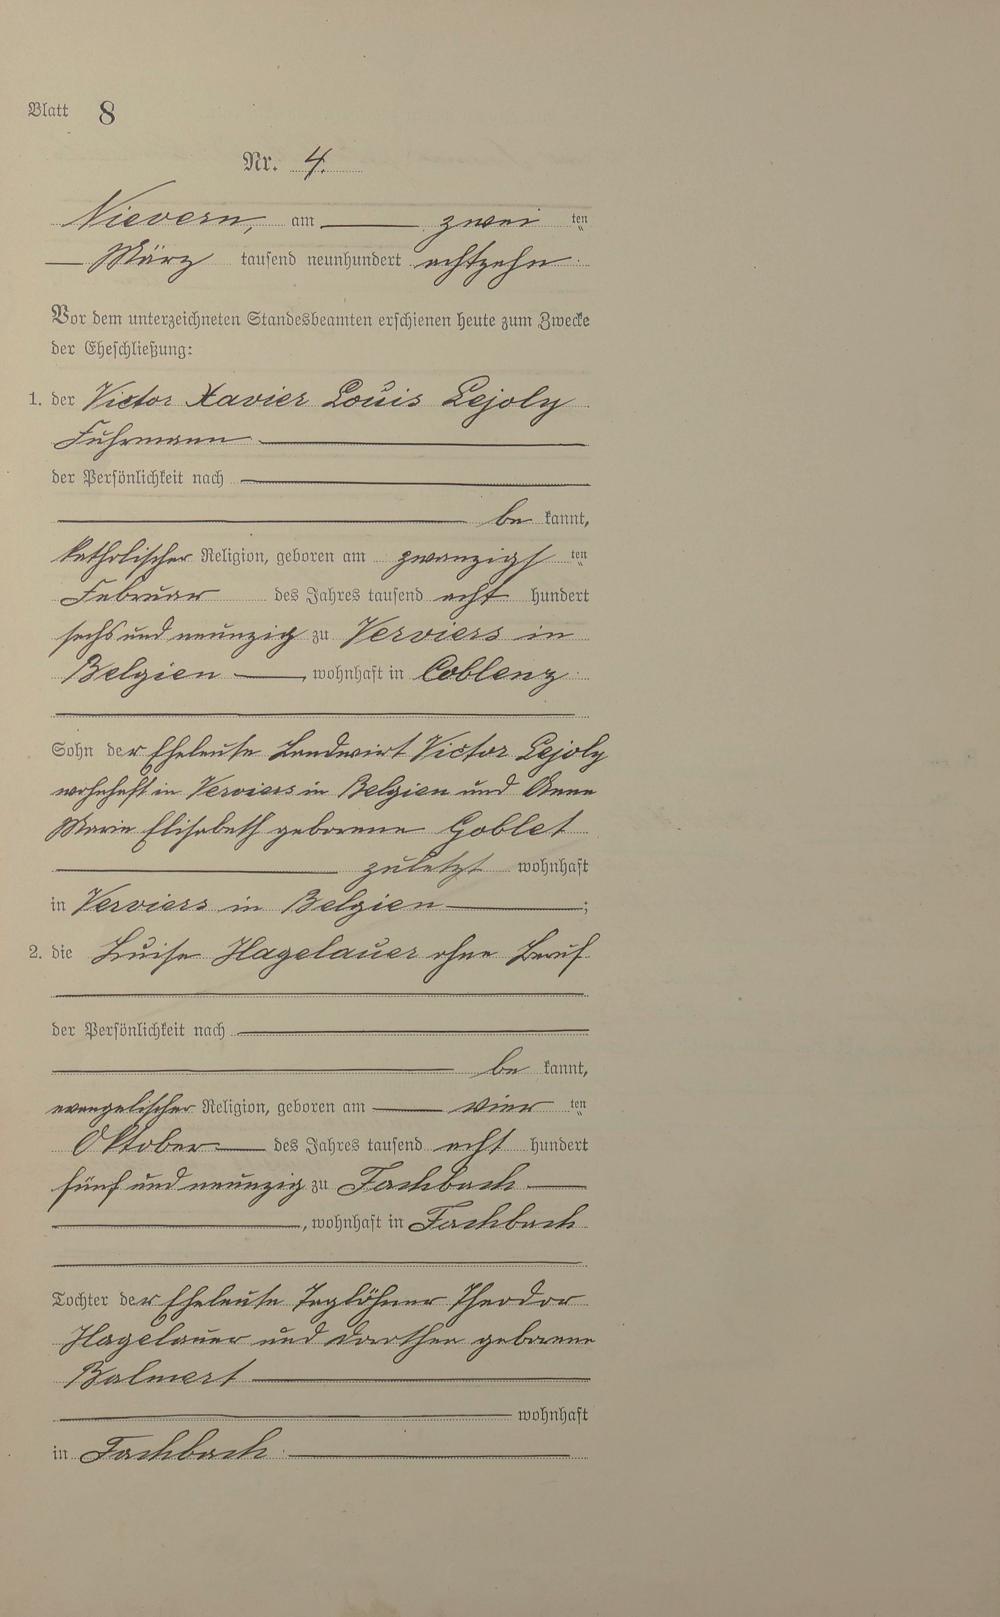 Blatt 8
Nr. 4.
Nievern, am zwei ten
März tausend neunhundert achtzehn
Vor dem unterzeichneten Standesbeamten erschienen heute zum Zwecke
der Eheschließung:
1. der Victor Xavier Louis Lejoly
Fuhrmann
der Persönlichkeit nach
be kannt,
katholischer Religion, geboren am zwanzigs ten
Februar des Jahres tausend acht hundert
sechs und neunzig zu Verviers in
Belgien, wohnhaft in Coblenz
Sohn der Eheleute Landwirt Victor Lejoly
wohnhaft in Verviers in Belgien und Anna
Maria Elisabeth geborene Goblet
zuletzt wohnhaft
in Verviers in Belgien;
2. die Luise Hagelauer ohne Beruf
der Persönlichkeit nach
be kannt,
evangelischer Religion, geboren am vier ten
Oktober des Jahres tausend acht hundert
fünf und neunzig zu Fachbach
, wohnhaft in Fachbach
Tochter der Eheleute Taglöhner Theodor
Hagelauer und Dorothea geborene
Balmert
wohnhaft
in Fachbach